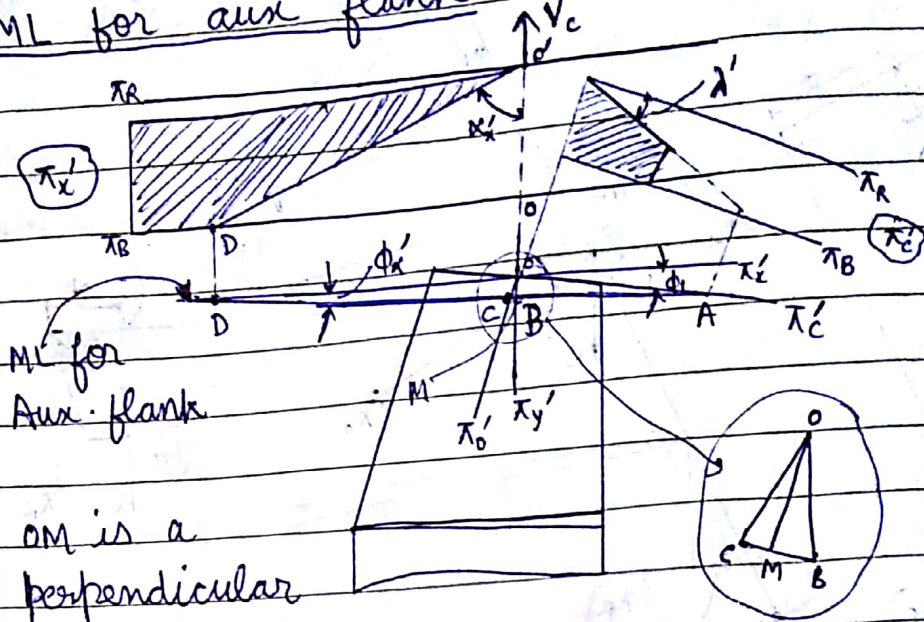 ML for aux flank
Vc
O'
πR
αx'
λ'
πx'
πR
πc'
O
πB
D
φx'
πB
φ1
πx'
D
C
B
A
πc'
ML for
Aux. flank
M
πo'
πy'
O
OM is a
C
M
B
perpendicular